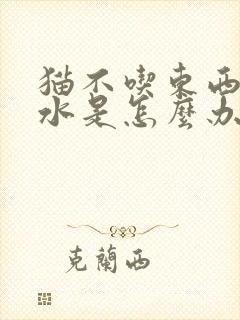 猫不喫東西
水是怎麼办
克蘭西